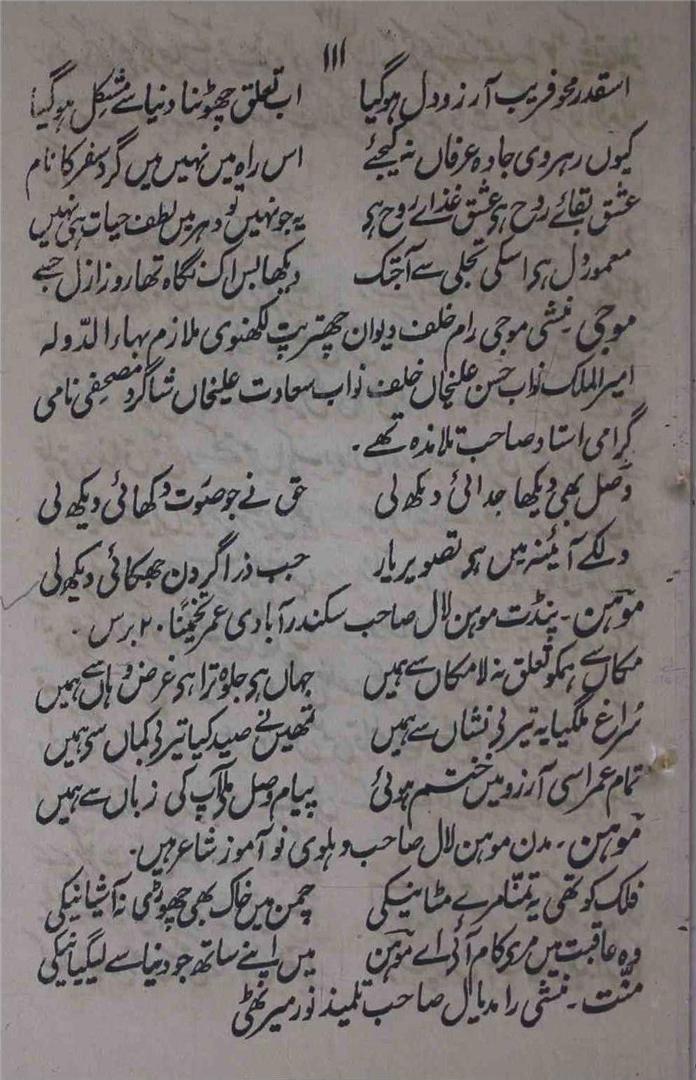 ۱۱۱
اسقدر محو فریب آرزو دل ہوگیا اب تعلق چھوٹنا دنیا سے مشکل ہوگیا
کیوں رہروی جادہ عرفاں نہ کیجئے اس راہ میں نہیں میں گرد سفر کا نام
عشق بقائے روح ہو عشق غذائے روح ہو یہ جو نہیں تو دہر میں لطف حیات ہی نہیں
معمور دل ہو اسکی تجلی سے آجتک دیکھا بس اک نگاہ تھا روز ازل جسے
موجی منشی موجی رام خلف دیوان چھترپت لکھنوی ملازم بہاء الدّولہ
امیر الملک نواب حسن علیخاں خلف نواب سعادت علیخاں شاگرد مصحفی نامی
گرامی استاد صاحب تلامذہ تھے۔
وصل بھی دیکھا جدائی دیکھ لی حق نے جو صورت دکھائی دیکھ لی
دلکے آئینہ میں ہو تصویر یار جب ذرا گردن جھکائی دیکھ لی
موہن۔ پنڈت موہن لال صاحب سکندرآبادی عمر تخمیناً ۲۰ برس۔
مکاں سے ہمکو تعلق نہ لامکاں سے ہمیں جہاں ہو جلوہ ترا ہو غرض وہاں سے ہمیں
سُراغ ملگیا یہ تیر بی نشاں سے ہمیں تمھیں نے صید کیا تیر بی کماں سی ہمیں
تمام عمر اسی آرزو میں ختم ہوئی پیام وصل ملا آپ کی زباں سے ہمیں
موہن۔ مدن موہن لال صاحب دہلوی نو آموز شاعر ہیں۔
فلک کو تھی یہ تمنّا مرے مٹانیکی چمن میں خاک بھی چھوڑی نہ آشیانیکی
وہ عاقبت میں مری کام آئی اے موہن میں اپنے ساتھ جو دنیا سے لیگیا نیکی
منّت۔ منشی رامدیال صاحب تلمیذ نور میرٹھی